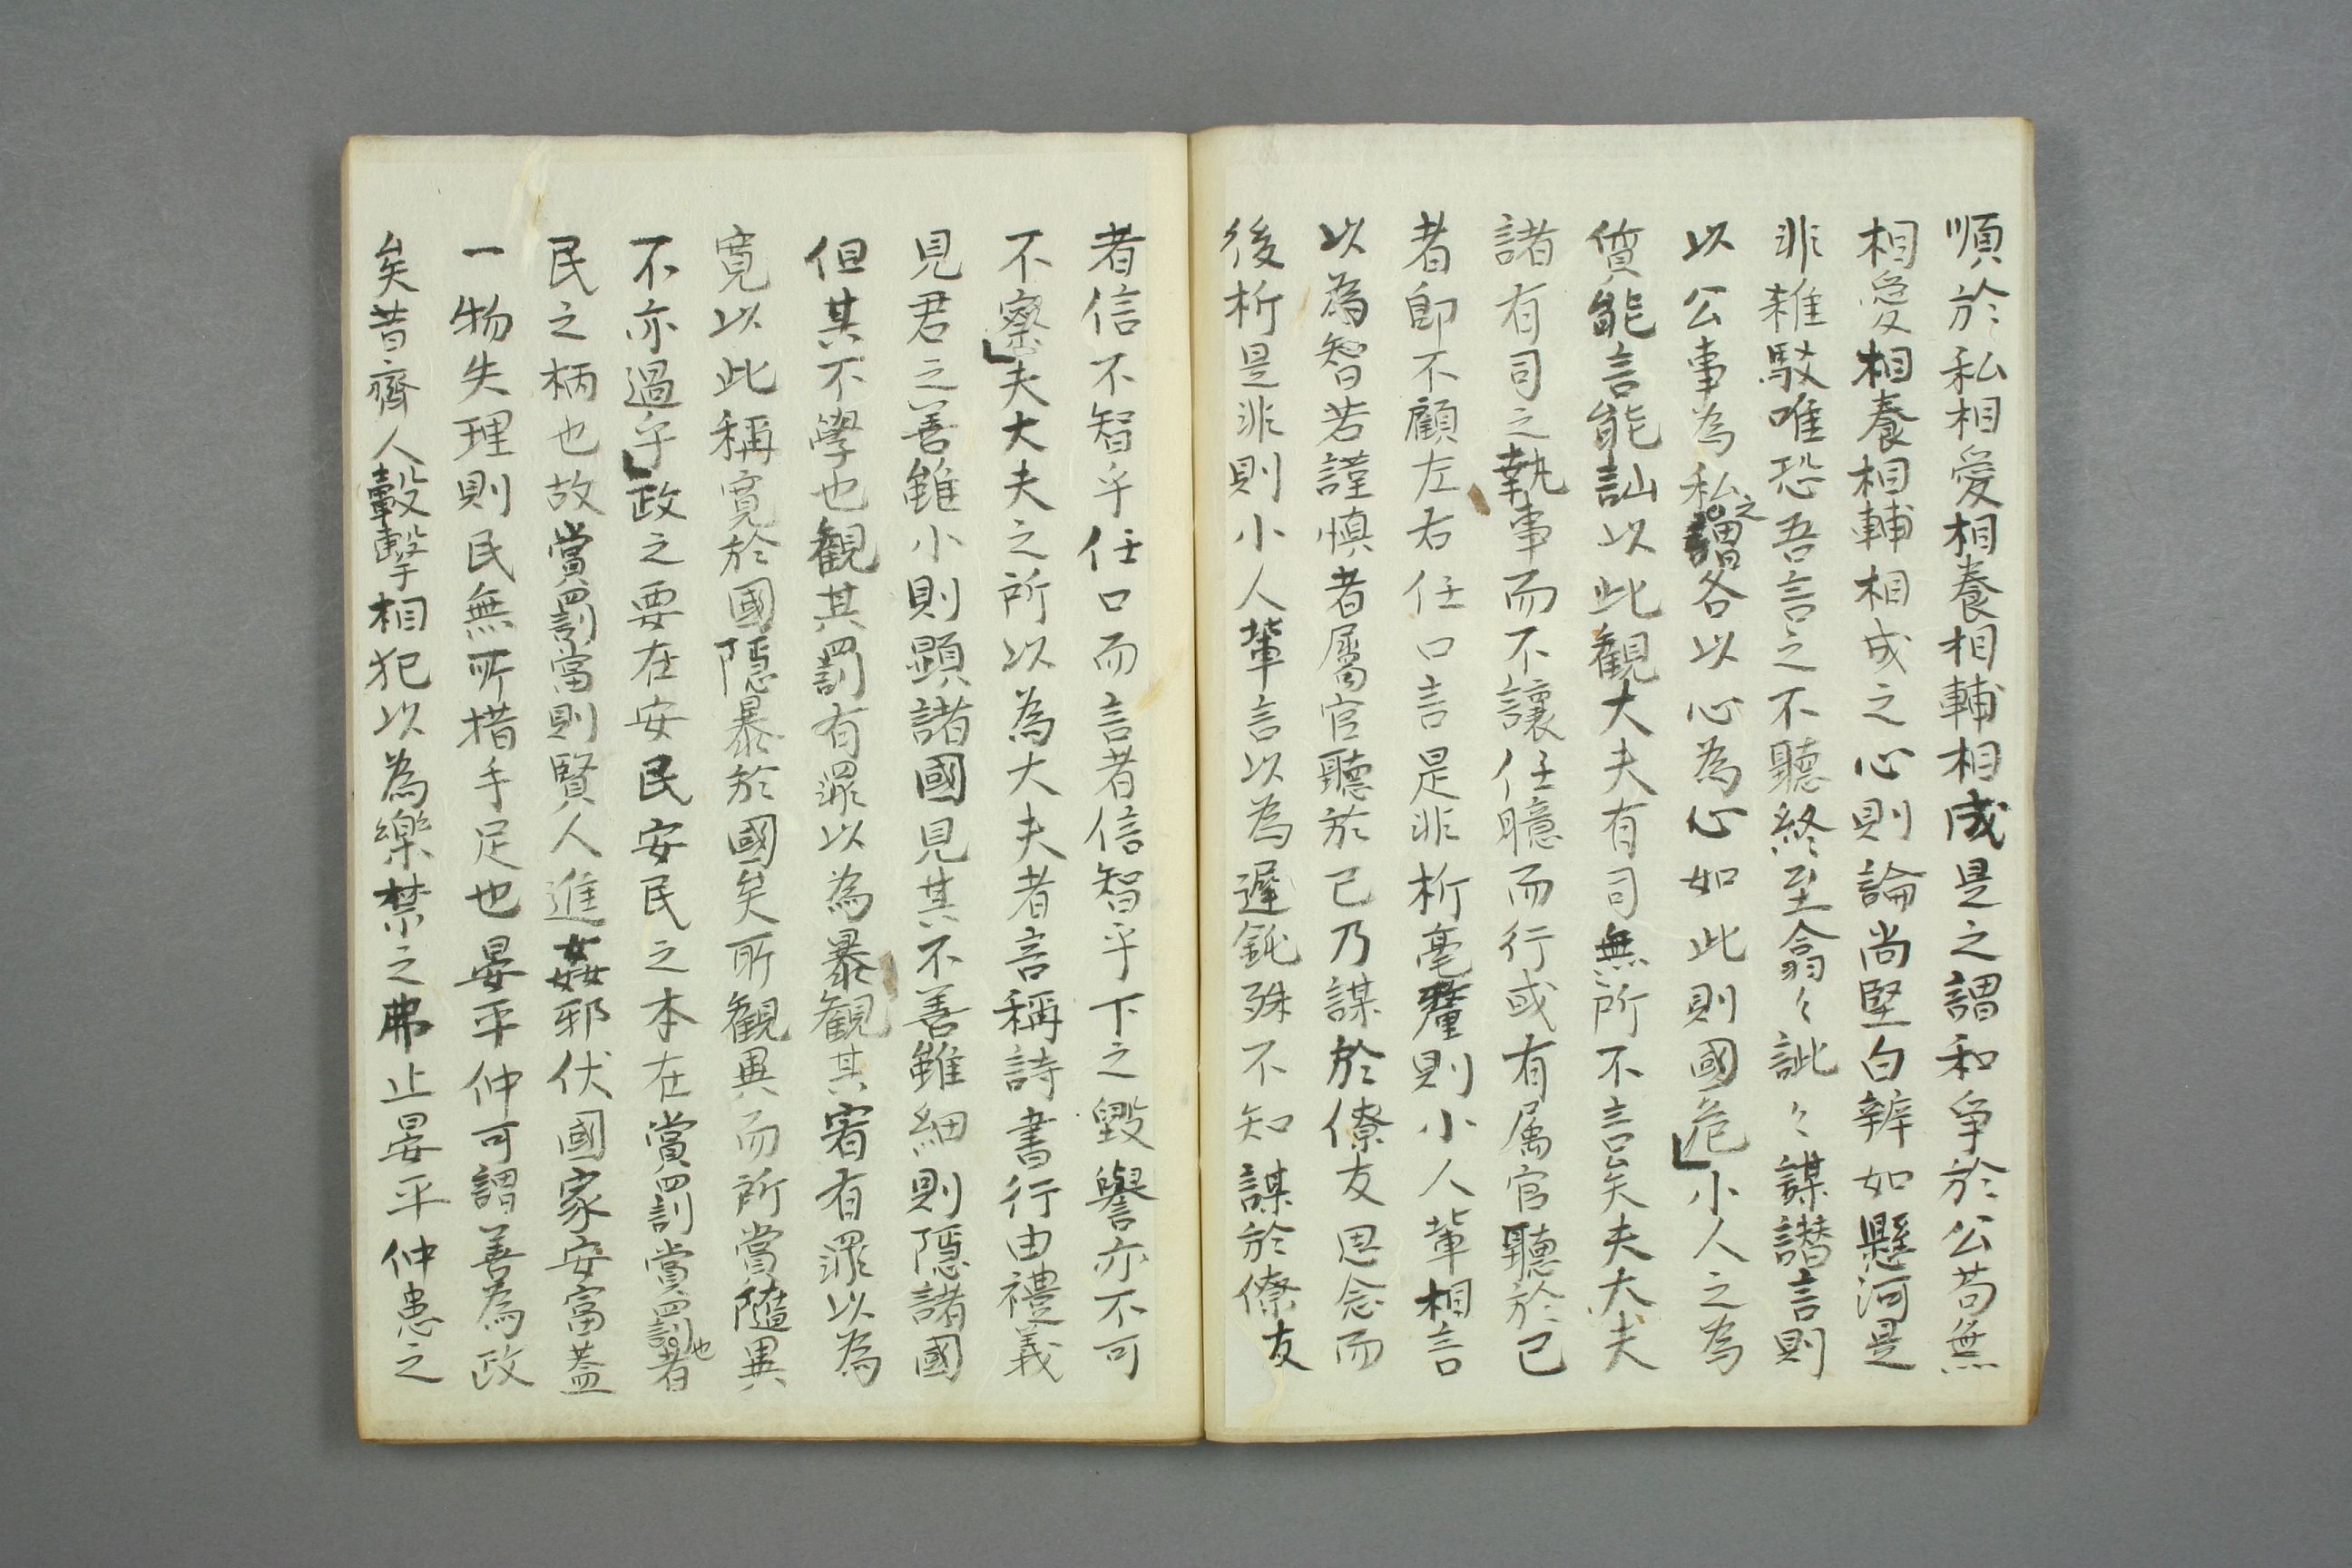 順於私相愛相養相輔相成是之謂和爭於公苟無
相愛相養相輔相成之心則論尚堅白辨如懸河是
非雜駁唯恐吾言之不聽終至翕〻訿〻謀譖言則
以公事為私之謂各以心為心如此則國危小人之為
質能言能訕以此觀大夫有司無所不言矣夫大夫
諸有司之執事而不讓任臆而行或有属官聽於己
者即不顧左右任口言是非析毫釐則小人輩相言
以為智若謹慎者屬官聽於己乃謀於僚友思念而
後析是非則小人輩言以為遲鈍殊不知謀於僚友
者信不智乎任口而言者信智乎下之毀譽亦不可
不察夫大夫之所以為大夫者言稱詩書行由禮義
見君之善雖小則顕諸國見其不善雖細則隱諸國
但其不學也觀其罰有罪以為暴觀其宥有罪以為
寛以此稱寛於國隱暴於國矣所觀異而所賞隨異
不亦過乎政之要在安民安民之本在賞罰賞罰者也
民之柄也故賞罰當則賢人進姦邪伏國家安富蓋
一物失理則民無所措手足也晏平仲可謂善為政
矣昔齊人轂擊相犯以為樂禁之弗止晏平仲患之